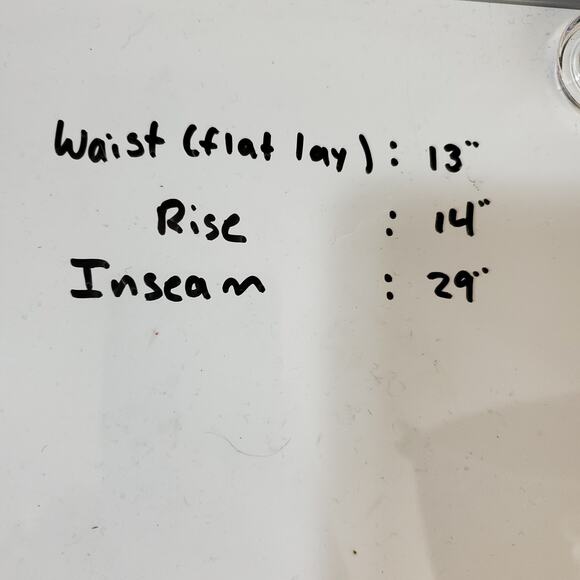 Waist (flat lay) : 13"
Rise : 14"
Inseam : 29"